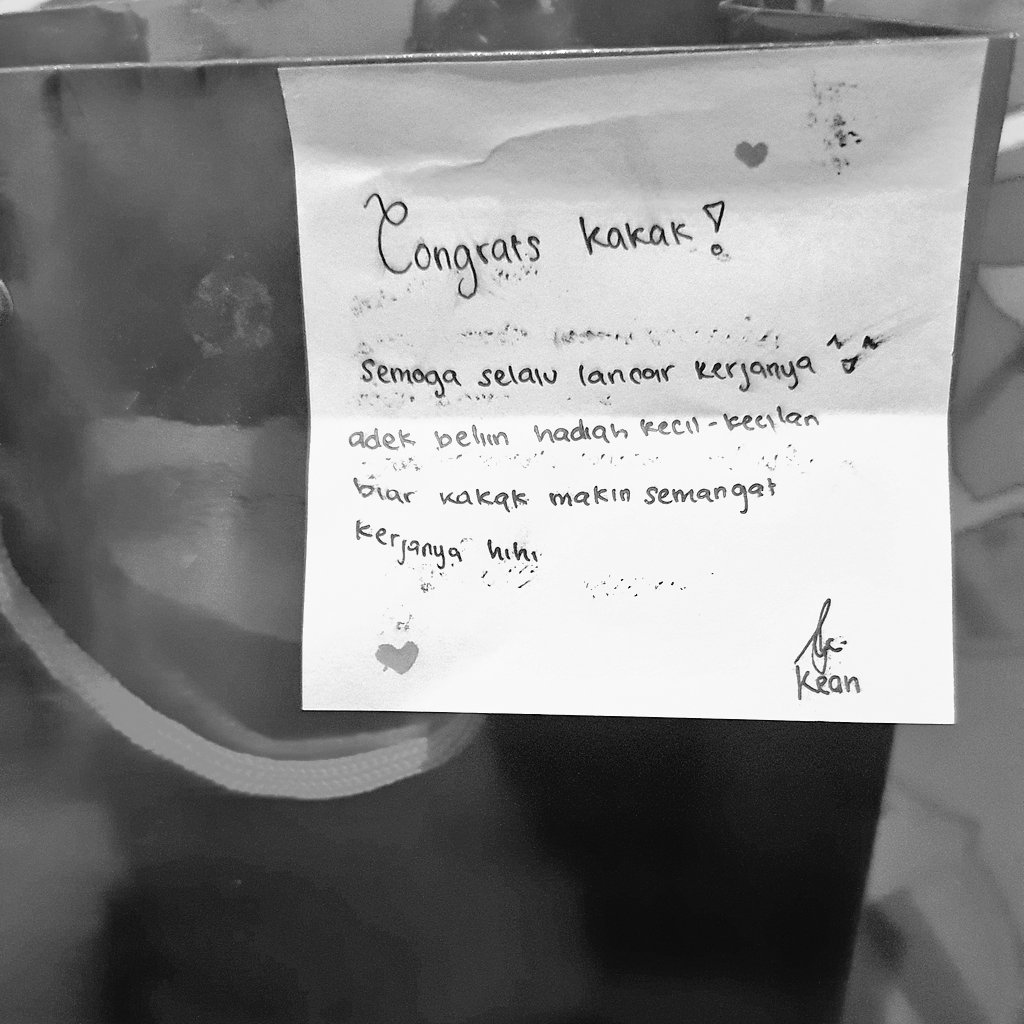 Congrats kakak!
semoga selalu lancar kerjanya
adek beliin hadiah kecil-kecilan
biar kakak makin semangat
kerjanya hihi
Kean